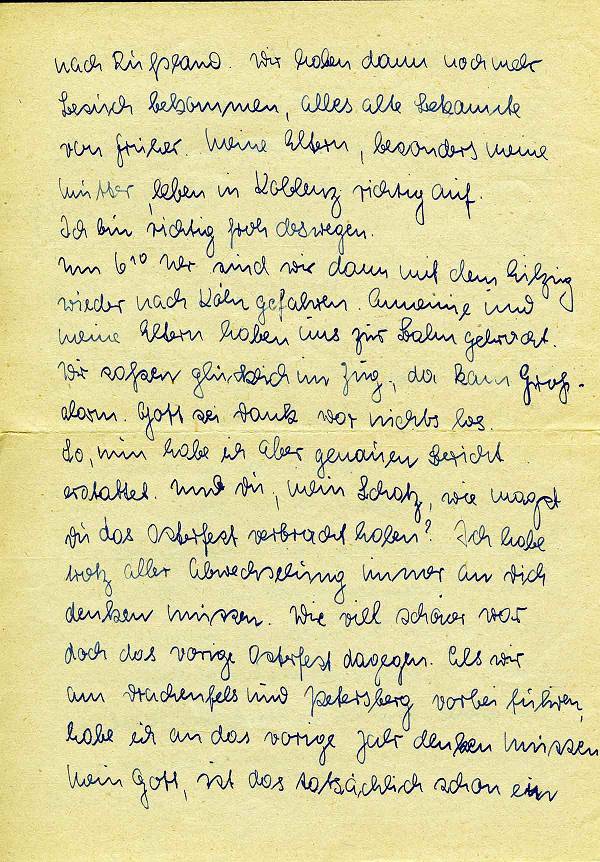 nach Rußland. Wir haben dann noch mehr
Besuch bekommen, alles alte Bekannte
von früher. Meine Eltern, besonders meine
Mutter, leben in Koblenz richtig auf.
Ich bin richtig froh deswegen.
Um 6¹⁰ Uhr sind wir dann mit dem Eilzug
wieder nach Köln gefahren. Annemie und
meine Eltern haben uns zur Bahn gebracht.
Wir saßen glücklich im Zug, da kam Groß-
alarm. Gott sei Dank war nichts los.
So, nun habe ich aber genauen Bericht
erstattet. Und Du, mein Schatz, wie magst
Du das Osterfest verbracht haben? Ich habe
trotz aller Abwechselung immer an Dich
denken müssen. Wie viel schöner war
doch das vorige Osterfest dagegen. Als wir
am Drachenfels und Petersberg vorbei führen,
habe ich an das vorige Jahr denken müssen
Mein Gott, ist das tatsächlich schon ein